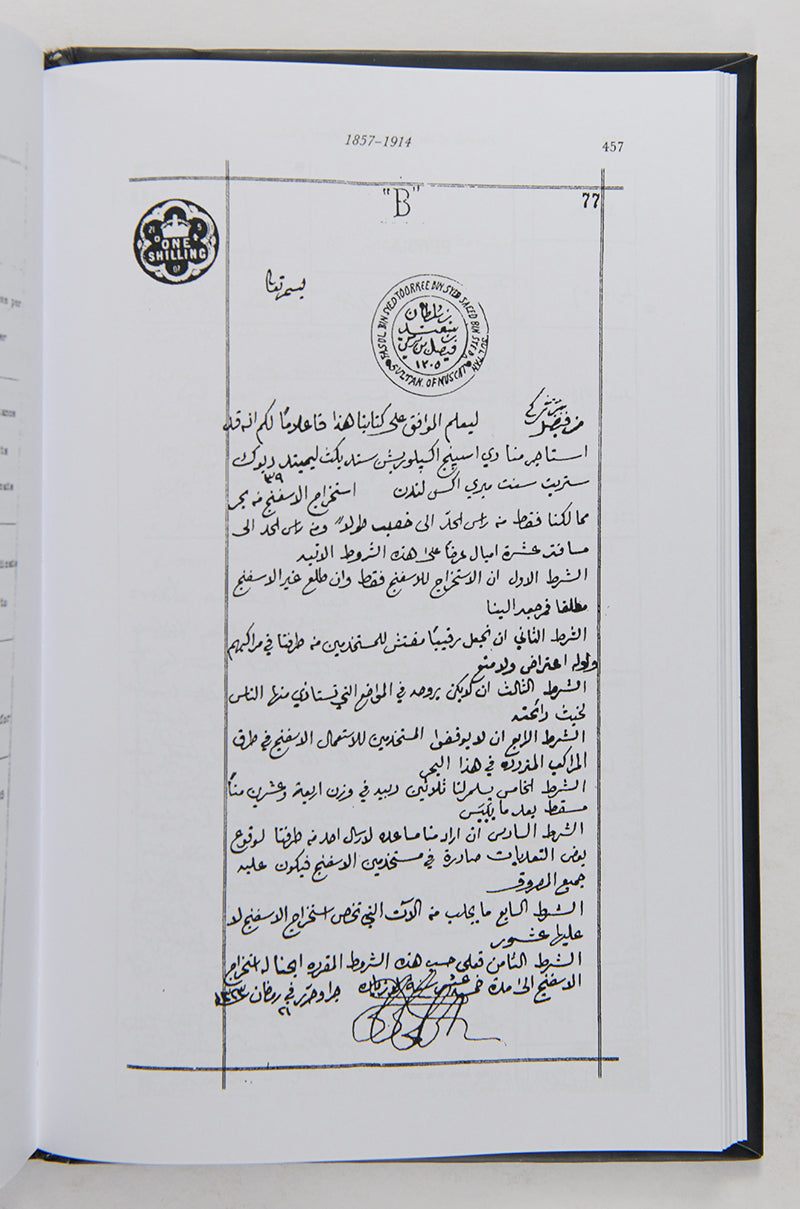 1857–1914
457
"B"
77
ONE
SHILLING
بسمه تعالى
FASUL BIN SYED TOORKEE BIN SYED SAEED BIN SYED SULTAN
SULTAN OF MUSCAT
سلطان
فيصل بن تركي
١٣٠٥
من فيصل بن تركي
ليعلم الواقف على كتابنا هذا فاعلاما لكم انه قد
استاجر منا دي اسپنج اكسپلوريشن سنديكت ليميتد ديوك
ستريت سنت ميري اكس لندن ٣٩ استخراج الاسفنج من بحر
ممالكنا فقط من راس الحد الى خصب طولا ومن راس الحد الى
مسافة عشرة اميال عرضا على هذه الشروط الاتيه
الشرط الاول ان الاستخراج للاسفنج فقط وان طلع غير الاسفنج
مطلقا فمرجعه الينا
الشرط الثاني ان نجعل رقيبا مفتش للمستخدمين من طرفنا في مراكبهم
وله اعتراض ولا منع
الشرط الثالث ان لا يكن يروحه في المواضع التي تستاذي منها الناس
لخبث رائحته
الشرط الرابع ان لا يوقفوا المستخدمين للاستعمال الاسفنج في طرق
المراكب المتردده في هذا البحر
الشرط الخامس يسلم لنا ثلاثين ربيه في وزن اربعة وعشرين منّا
مسقط بعد ما ييبس
الشرط السادس ان اراد منا مساعده لارسال احد من طرفنا لوقوع
بعض التعديات صادرة في مستخدمين الاسفنج فيكون عليه
جميع المصروف
الشرط السابع ما يجلب من الآلات التي تخص استخراج الاسفنج لا
عليها عشور
الشرط الثامن فعلى حسب هذه الشروط المقرره ابحنا له استخراج
الاسفنج الى مدة خمسة عشر سنة جرا وحرر في رمضان ١٣٢٣
٢١